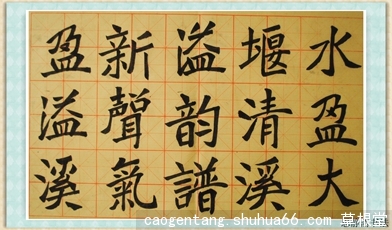 水盈大
堰清溪
溢韵譜
新聲氣
盈溢溪
caogentang.shuhua66.com 草根堂